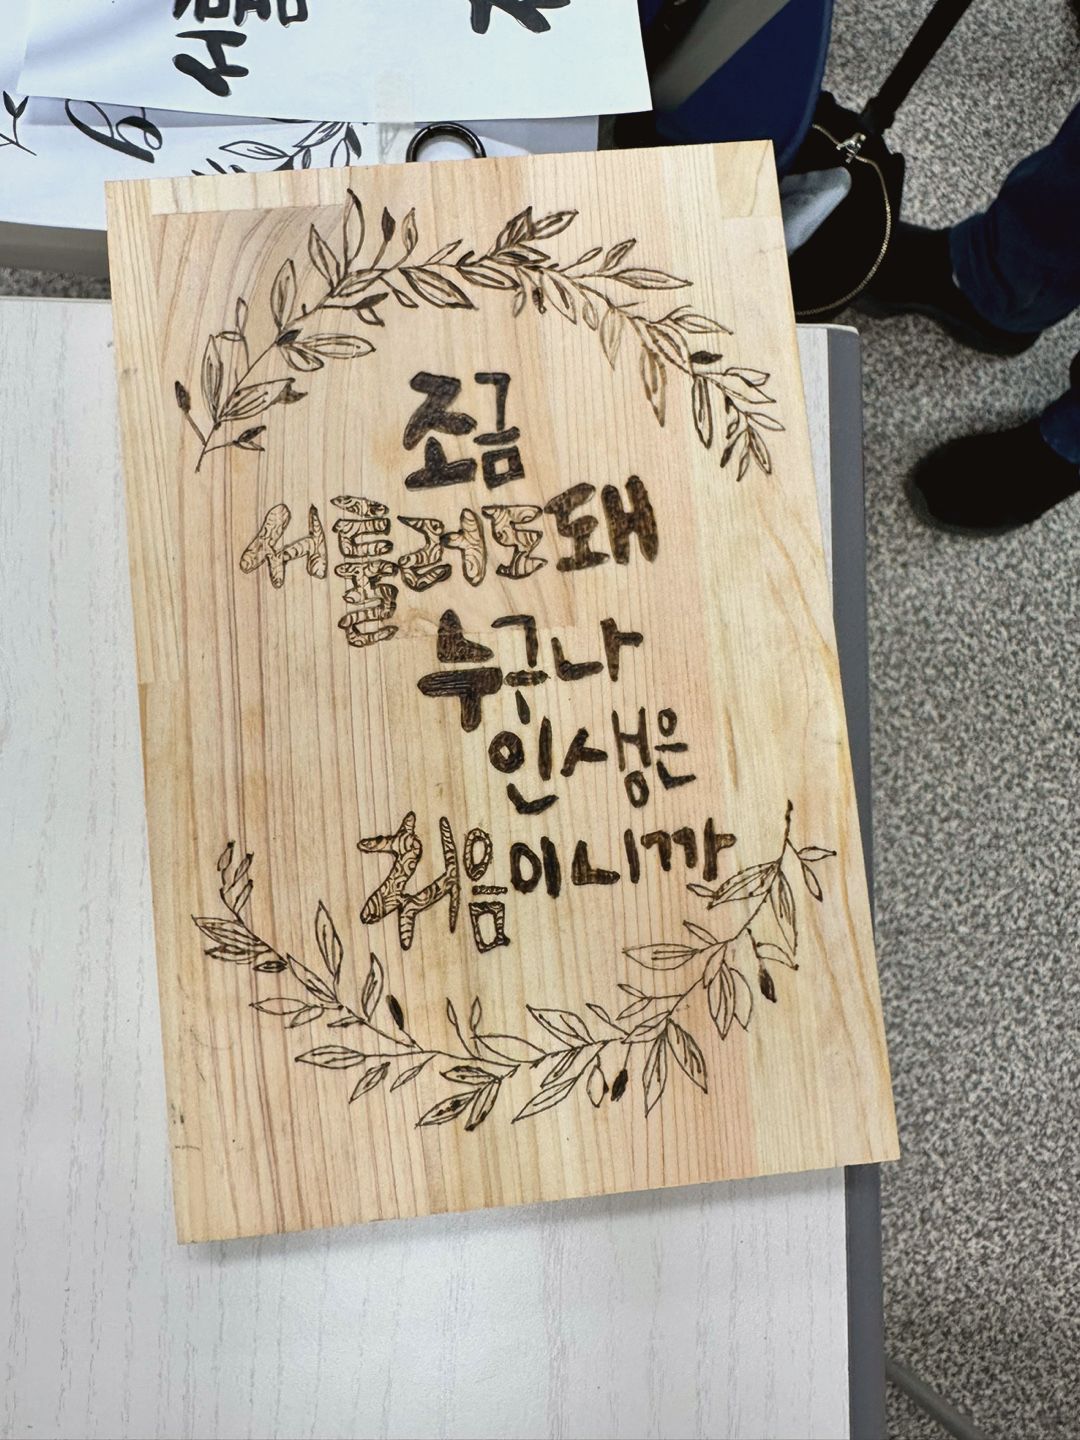 조금
서툴러도돼
누구나
인생은
처음이니까